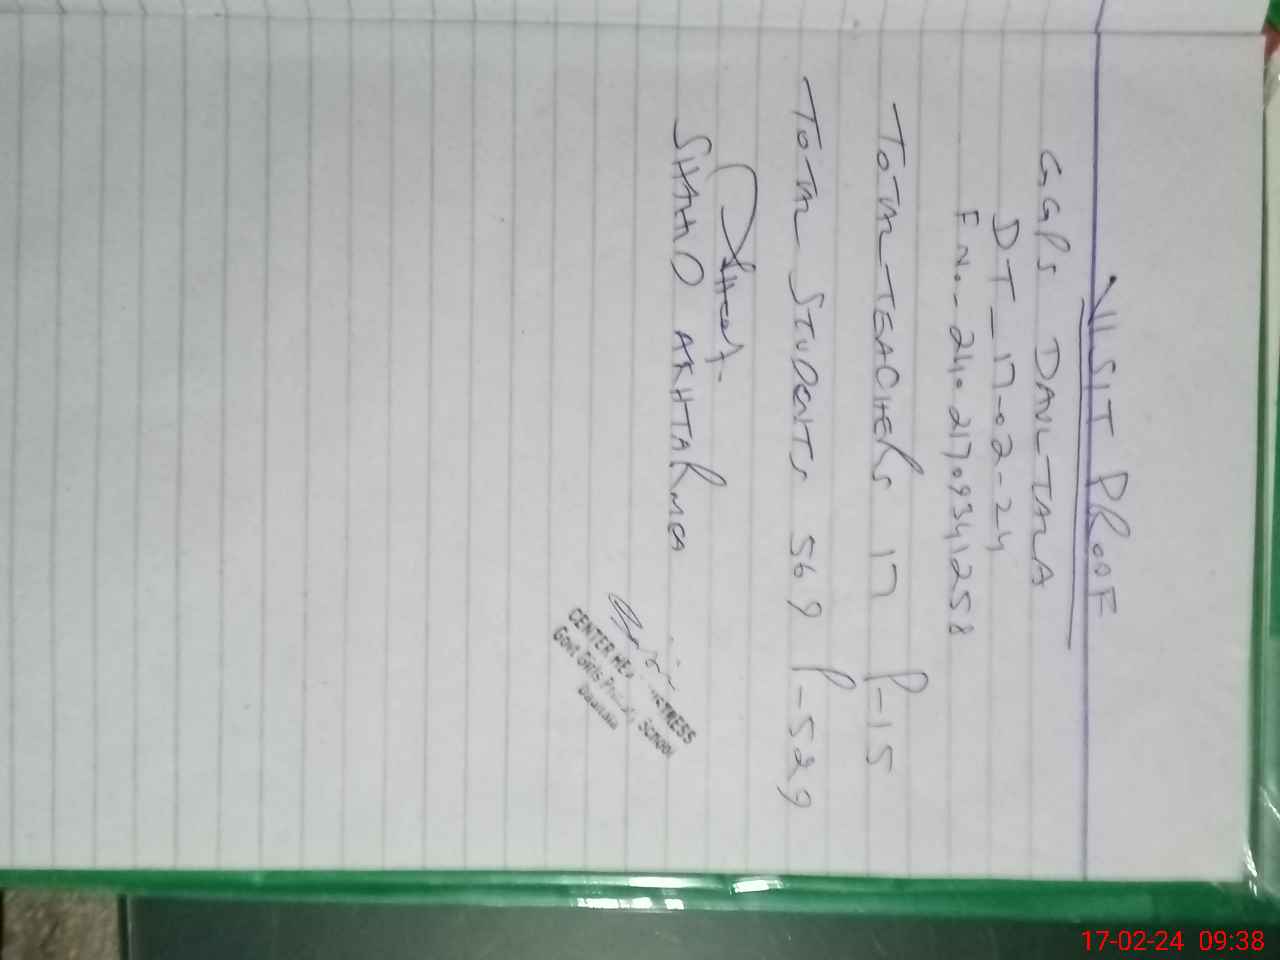 VISIT PROOF
GGPS DAULTALA
DT-17-02-24
F No-240217093941258
TOTAL TEACHERS 17 P-15
TOTAL STUDENTS 569 P-529
SHAHID AKHTAR MEA
CENTER HEADMISTRESS
Govt Girls Primary School
Daultala
17-02-24 09:38